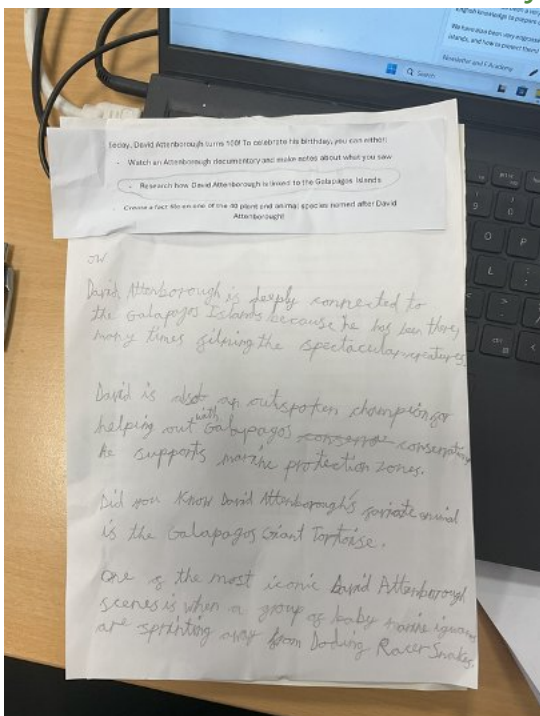 English knowledge to prepare
We have also been very engrossed
islands, and how to protect them!
Newsletter and F Academy
Search
Today, David Attenborough turns 100! To celebrate his birthday, you can either:
- Watch an Attenborough documentary and make notes about what you saw
- Research how David Attenborough is linked to the Galapagos Islands
- Create a fact file on one of the 40 plant and animal species named after David
Attenborough!
JW
David Attenborough is deeply connected to
the Galapagos Islands because he has been there,
many times filming the spectacular creatures.
David is also an outspoken champion for
helping out with Galapagos conserva conservation
he supports marine protection zones.
Did you know David Attenborough's favriote animal
is the Galapagos Giant Tortoise.
One of the most iconic David Attenborough
scenes is when a group of baby marine iguanas
are sprinting away from Racer Snakes.